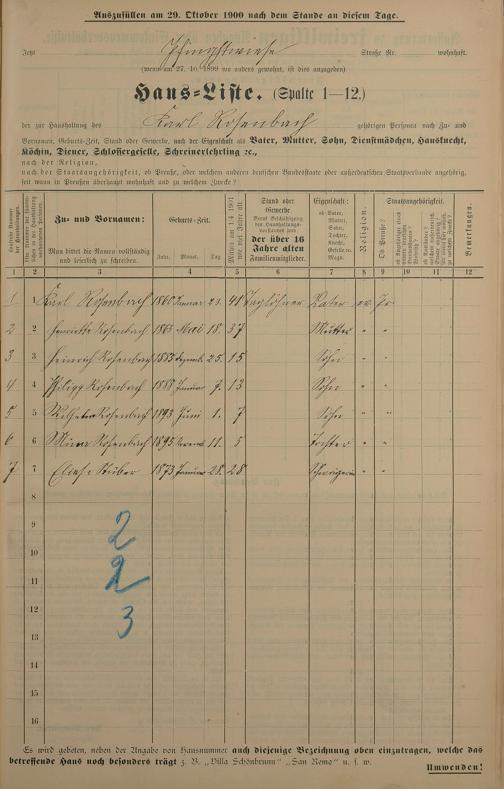 Auszufüllen am 29. Oktober 1900 nach dem Stande an diesem Tage.
Jetzt Pfingstwiese Straße Nr. wohnhaft.
(wenn am 27. 10. 1899 wo anders gewohnt, ist dies anzugeben)
Haus-Liste. (Spalte 1—12.)
der zur Haushaltung des Karl Rosenbach gehörigen Personen nach Zu- und
Vornamen, Geburts-Zeit, Stand oder Gewerbe, nach der Eigenschaft als Vater, Mutter, Sohn, Dienstmädchen, Hausknecht,
Köchin, Diener, Schlossergeselle, Schreinerlehrling ꝛc.,
nach der Religion,
nach der Staatsangehörigkeit, ob Preuße, oder welchem anderen deutschen Bundesstaate oder außerdeutschen Staatverbande angehörig,
seit wann in Preußen überhaupt wohnhaft und zu welchem Zwecke?
Zu- und Vornamen:
Man bittet die Namen vollständig
und leserlich zu schreiben.
Geburts-Zeit.
Jahr. Monat. Tag.
Stand oder
Gewerbe
der über 16
Jahre alten
Familienmitglieder.
Eigenschaft:
ob Vater,
Mutter,
Sohn,
Tochter,
Knecht,
Geselle ꝛc.
Magd.
Religion.
Ob Preuße?
Staatsangehörigkeit.
Bemerkungen.
1 2 3 4 5 6 7 8 9 10 11 12
1 1 Karl Rosenbach 1860 Januar 23. 41 Taglöhner Vater ev. Ja
2 2 Henriette Rosenbach 1863 Mai 18. 37 Mutter " "
3 3 Heinrich Rosenbach 25. 15 Sohn " "
4 4 Philipp Rosenbach 1888 Januar 7. 13 Sohn " "
5 5 Rosenbach 1893 Juni 1. 7 Sohn " "
6 6 Mina Rosenbach 1895 11. 5 Tochter " "
7 7 Stüber 1873 Januar 28. 28 " "
8
9
10
11
12
13
14
15
16
2
2
3
Es wird gebeten, neben der Angabe von Hausnummer auch diejenige Bezeichnung oben einzutragen, welche das
betreffende Haus noch besonders trägt z. B. „Villa Schönbrunn" „San Remo" u. s. w.
Umwenden!